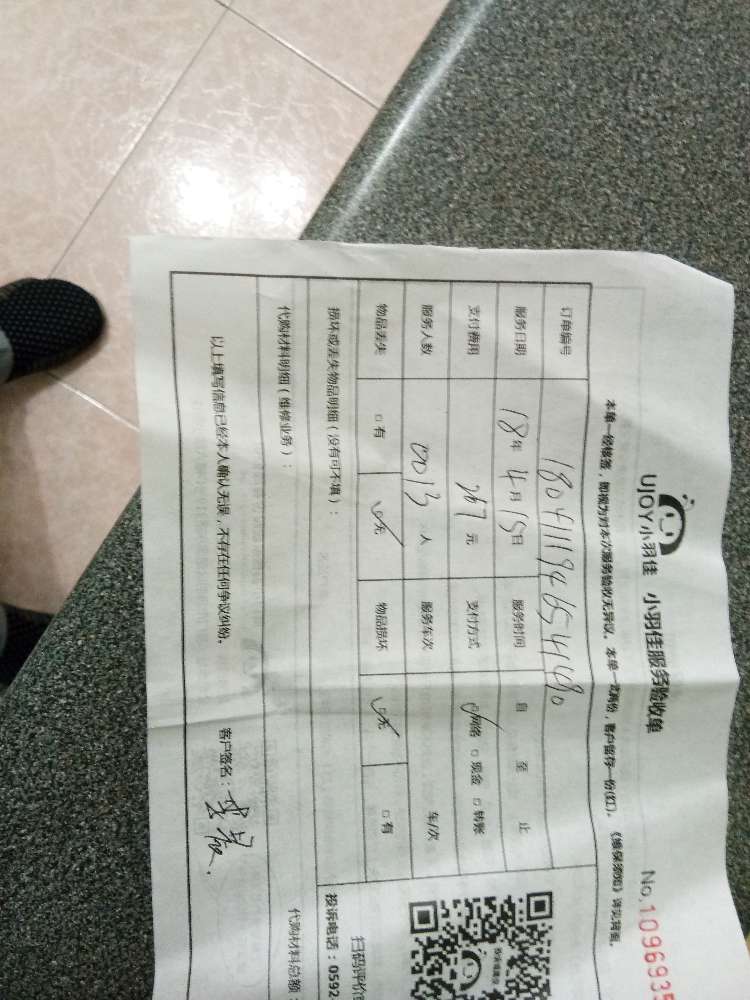 UJOY小羽佳 小羽佳服务验收单
No.1096935
本单一经核签，即视为对本次服务验收无异议。本单一式两份，客户留存一份(红)。《维保须知》详见背面。
订单编号 180411946541690
服务日期 18年4月15日 服务时间 自 至 止
支付费用 267元 支付方式 网络 现金 转账
服务人数 0013人 服务车次 车/次
物品丢失 有 无 物品损坏 无 有
损坏或丢失物品明细（没有可不填）：
代购材料明细（维修业务）：
代购材料总额
以上填写信息已经本人确认无误，不存在任何争议纠纷。
客户签名：
扫码评价
投诉电话：0592